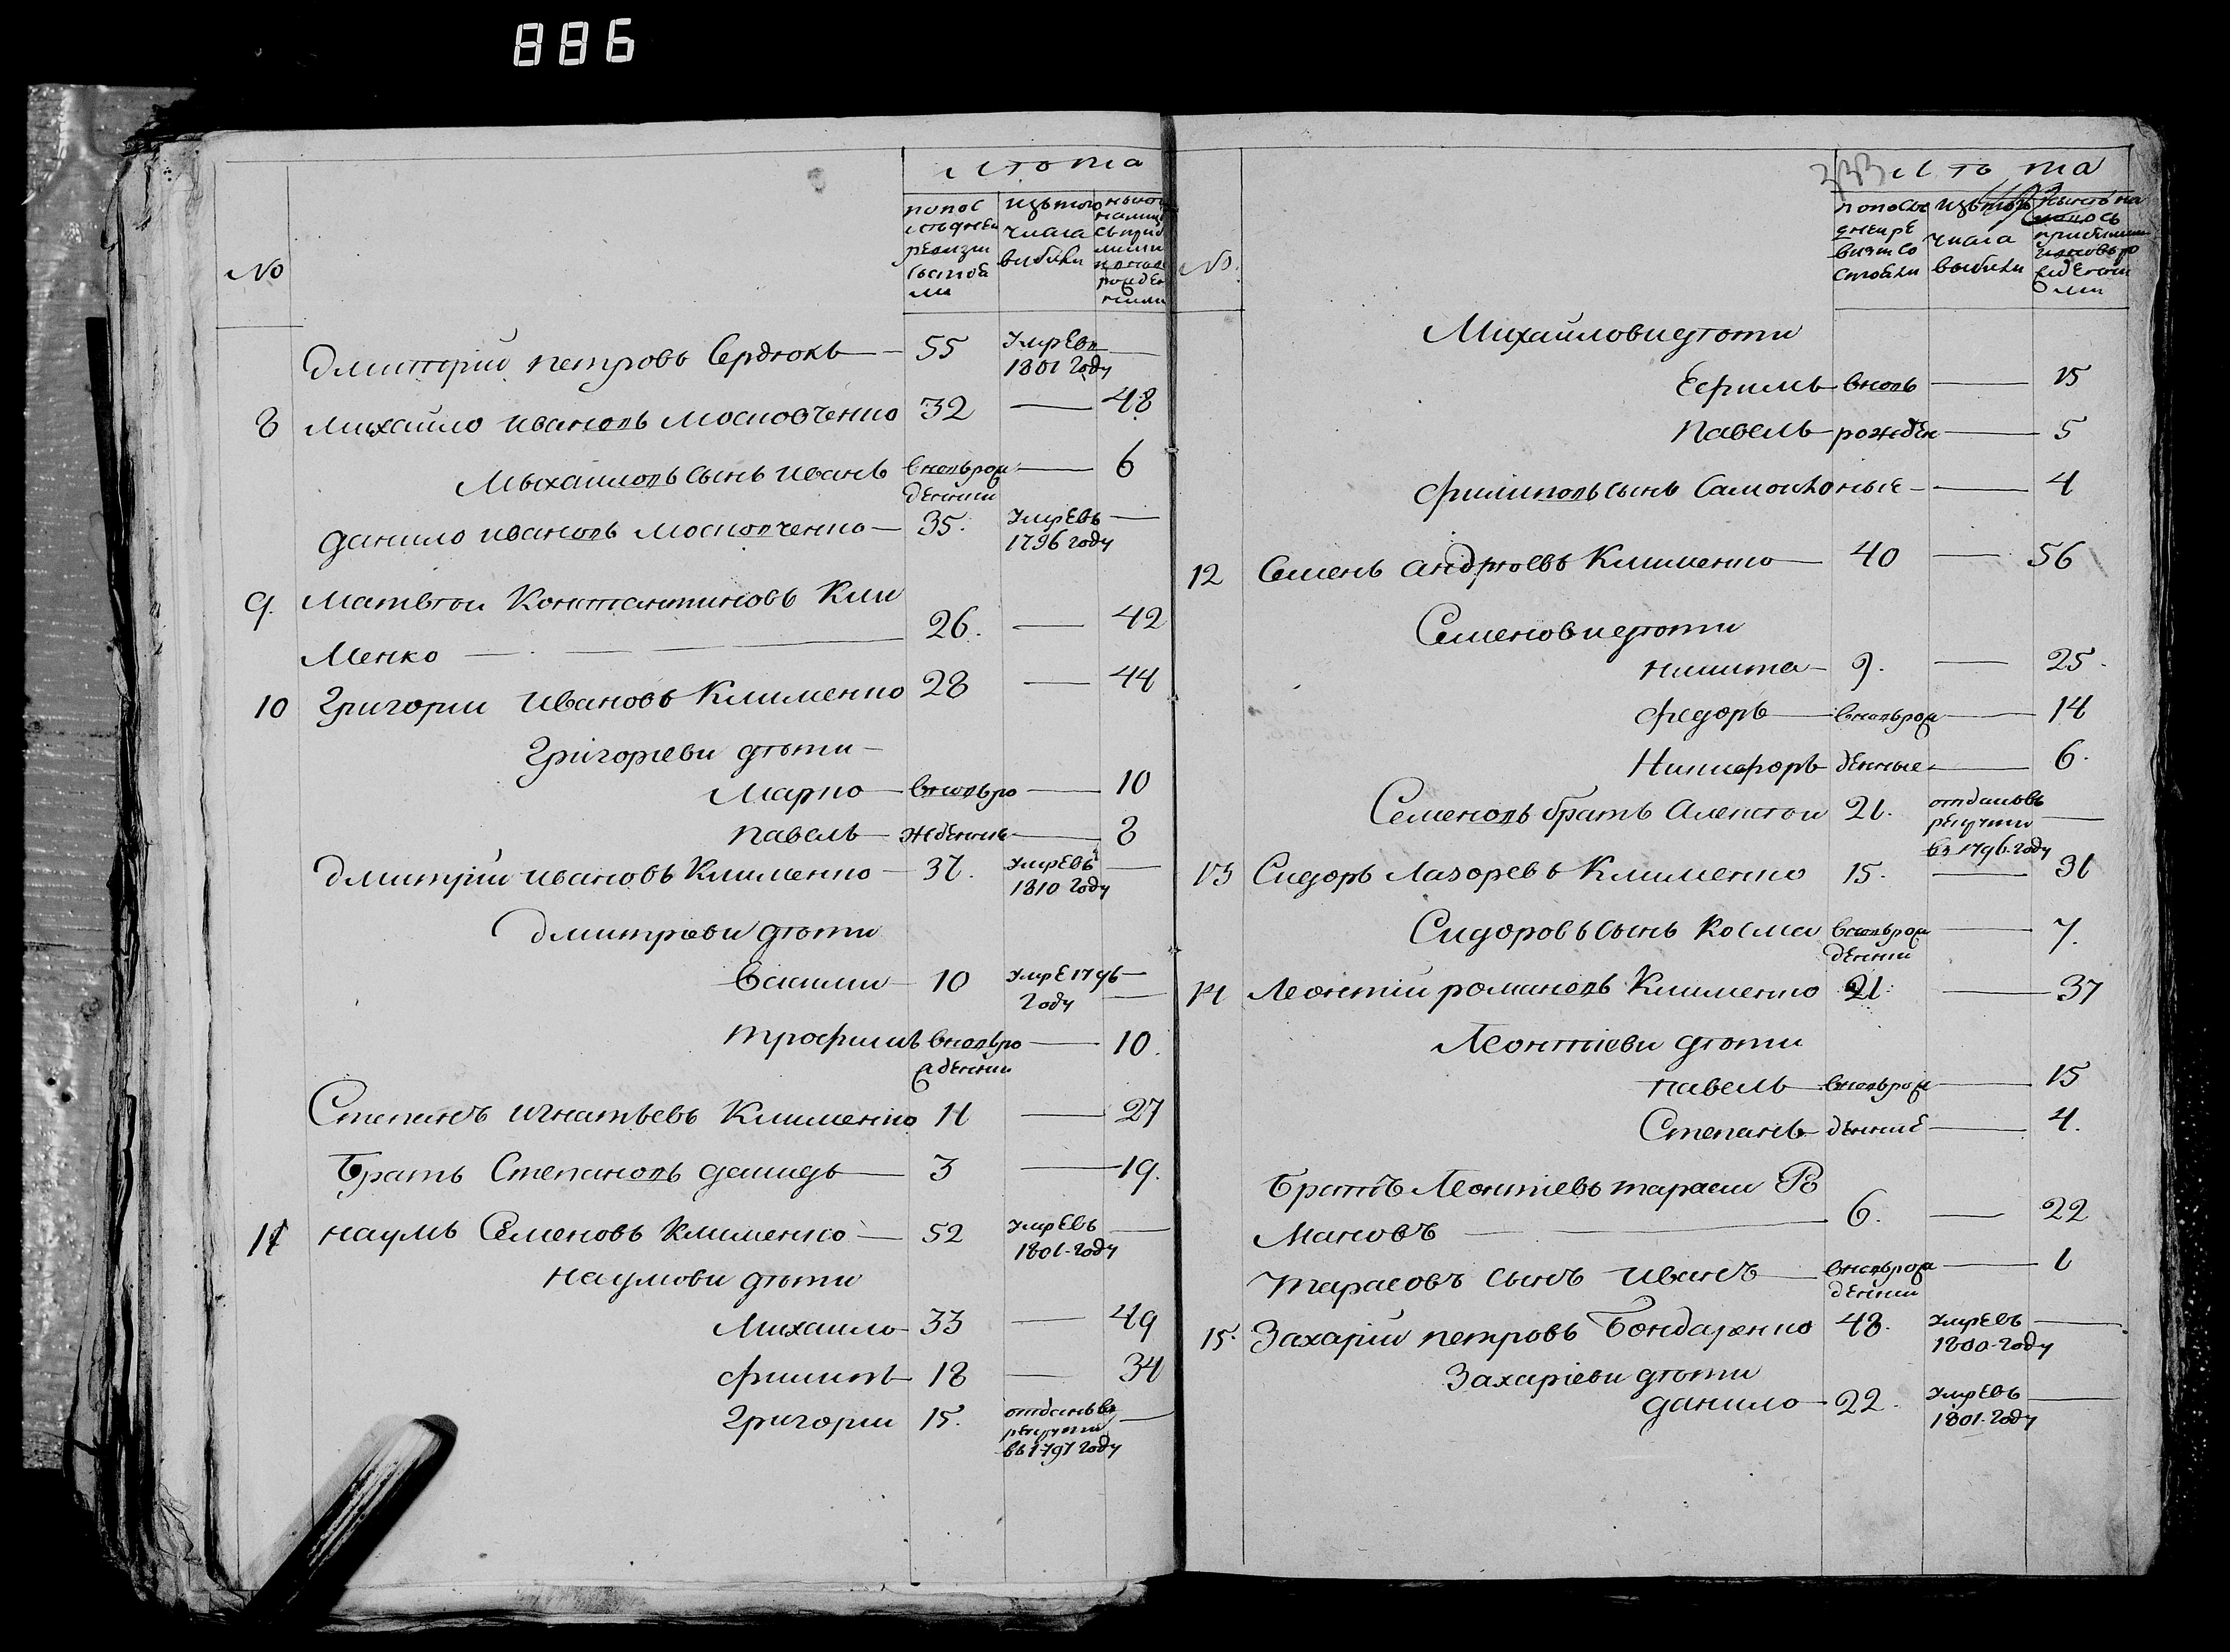 886
лѣта
№
попос
лѣдней
ревизии
состоя
ли
изътого
числа
выбыли
Дмитрий петровъ Сердюкъ — 55 умреВъ —
1801 году
8 Михайло ивановъ Московченко 32 — 48
Мыхайловъ сынъ иванъ вновьрож — 6
денний
данило ивановъ Московченко — 35. умреВъ —
1796 году
9. Матвѣй Константиновъ Кли
Менко — 26. — 42
10 Григорий ивановъ Клименко 28 — 44
Григориеви дѣти —
Марко — вновьро — 10
павелъ — жденние — 8
Дмитрій ивановъ Клименко — 31. умреВъ —
1810 году
Дмитрѣви дѣти
Василий — 10 умре 1796 —
году —
трофимъ вновьро — 10.
жденний
Степанъ игнатьевъ Клименко 11 — 27
Братъ Степановъ демидъ — 3 — 19.
11 наумъ Семеновъ Клименко — 52 умреВъ —
1801 году
наумови дѣти
Михайло — 33 — 49
филипъ — 18 — 34
Григорий 15. отданъвъ —
рекруты
въ 1797 году
333 лѣта
№
попослѣ
дней ре
визии со
стояли
изътого
числа
выбыли
Михайловидѣти
Ефимъ — вновь — 15
павелъ — рожден — 5
филиповъ сынъ Самойло ные — — 4
12 Семенъ андрѣевъ Клименко — 40 — 56
Семеновидѣти
никита — 9. — 25.
федоръ — вновьрож — 14
Никифоръ денные — 6.
Семеновъ братъ Алексѣй 21. отданъвъ
рекрути —
въ 1796 году
13 Сидоръ Лазоревъ Клименко 15. — 31
Сидоровъ сынъ Косма вновьрож — 7.
денний
14 Леонтий романовъ Клименко 21. — 37
Леонтиеви дѣти
павелъ — вновьрож — 15
Степанъ — денние — 4.
Братъ Леонтиевъ тарасий Ро
Мановъ — 6. — 22
тарасовъ сынъ иванъ — вновьрож — 1
денний
15. Захарій петровъ Бондаренко 48. умреВъ —
1800 году
Захаріеви дѣти
данило — 22. умреВъ —
1801 году